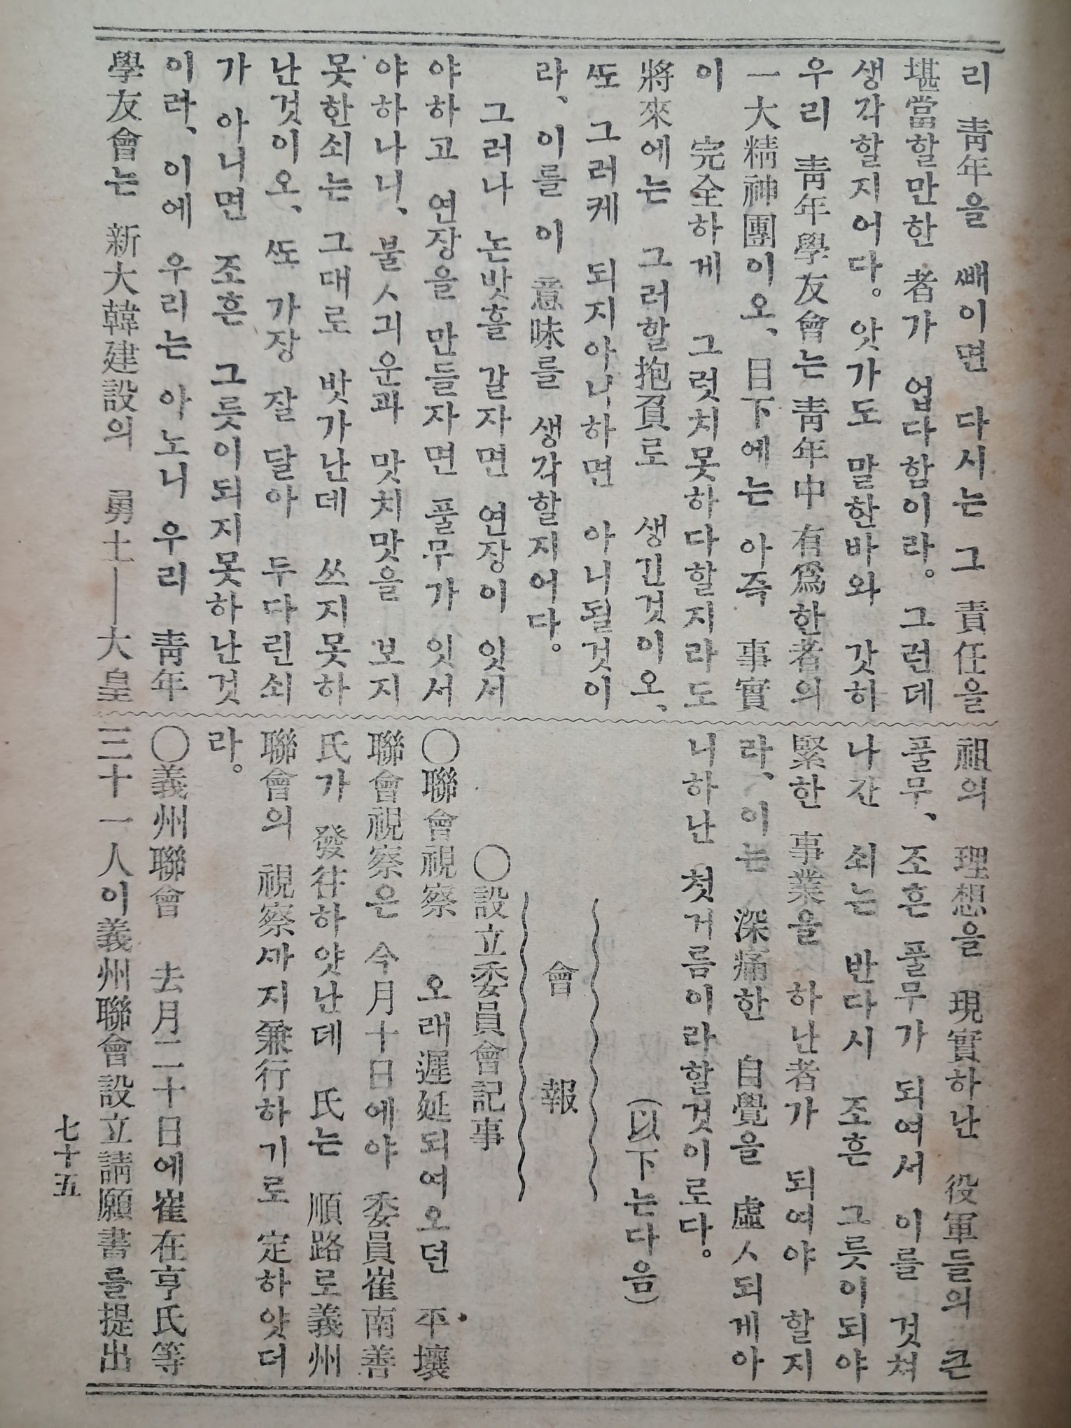 리 靑年을 빼이면 다시는 그 責任을
堪當할만한 者가 업다함이라。그런데
생각할지어다。앗가도 말한바와 갓히
우리 靑年學友會는 靑年中 有爲한者의
一大精神團이오、目下에는 아즉 事實
이 完全하게 그럿치못하다할지라도
將來에는 그러할抱負로 생긴것이오、
ᄯᅩ 그러케 되지아니하면 아니될것이
라、이를 이 意味를 생각할지어다。
그러나 논밧흘 갈자면 연장이 잇서
야하고 연장을 만들자면 풀무가 잇서
야하나니、불ㅅ긔운과 맛치맛을 보지
못한쇠는 그대로 밧가난데 쓰지못하
난것이오、ᄯᅩ 가장 잘 달아 두다린쇠
가 아니면 조흔 그릇이되지못하난것
이라、이에 우리는 아노니 우리 靑年
學友會는 新大韓建設의 勇士——大皇
祖의 理想을 現實하난 役軍들의 큰
풀무、조흔 풀무가 되여서 이를 것쳐
나간 쇠는 반다시 조흔 그릇이되야
緊한 事業을 하난者가 되여야 할지
라、이는 深痛한 自覺을 虛人되게아
니하난 첫거름이라할것이로다。
(以下는다음)
會報
〇設立委員會記事
〇聯會視察 오래遲延되여오던 平壤
聯會視察은 今月十日에야 委員崔南善
氏가 發徃하얏난데 氏는 順路로義州
聯會의 視察ᄭᅡ지兼行하기로 定하얏더
라。
〇義州聯會 去月二十日에崔在亨氏等
三十一人이義州聯會設立請願書를提出
七十五